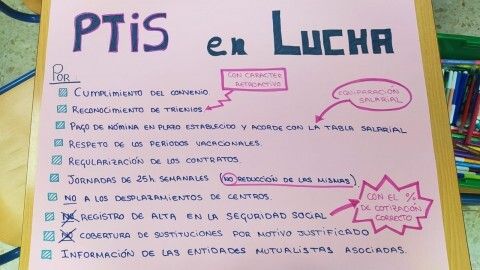 PTiS en LUCHA
POR
CUMPLIMIENTO DEL CONVENIO.
CON CARACTER RETROACTIVO
RECONOCIMIENTO DE TRIENIOS
EQUIPARACIÓN SALARIAL
PAGO DE NÓMINA EN PLAZO ESTABLECIDO Y ACORDE CON LA TABLA SALARIAL
RESPETO DE LOS PERIODOS VACACIONALES.
REGULARIZACIÓN DE LOS CONTRATOS.
JORNADAS DE 25h SEMANALES (NO REDUCCIÓN DE LAS MISMAS).
NO A LOS DESPLAZAMIENTOS DE CENTROS.
CON EL % DE COTIZACIÓN CORRECTO
NO REGISTRO DE ALTA EN LA SEGURIDAD SOCIAL
NO COBERTURA DE SUSTITUCIONES POR MOTIVO JUSTIFICADO
INFORMACIÓN DE LAS ENTIDADES MUTUALISTAS ASOCIADAS.